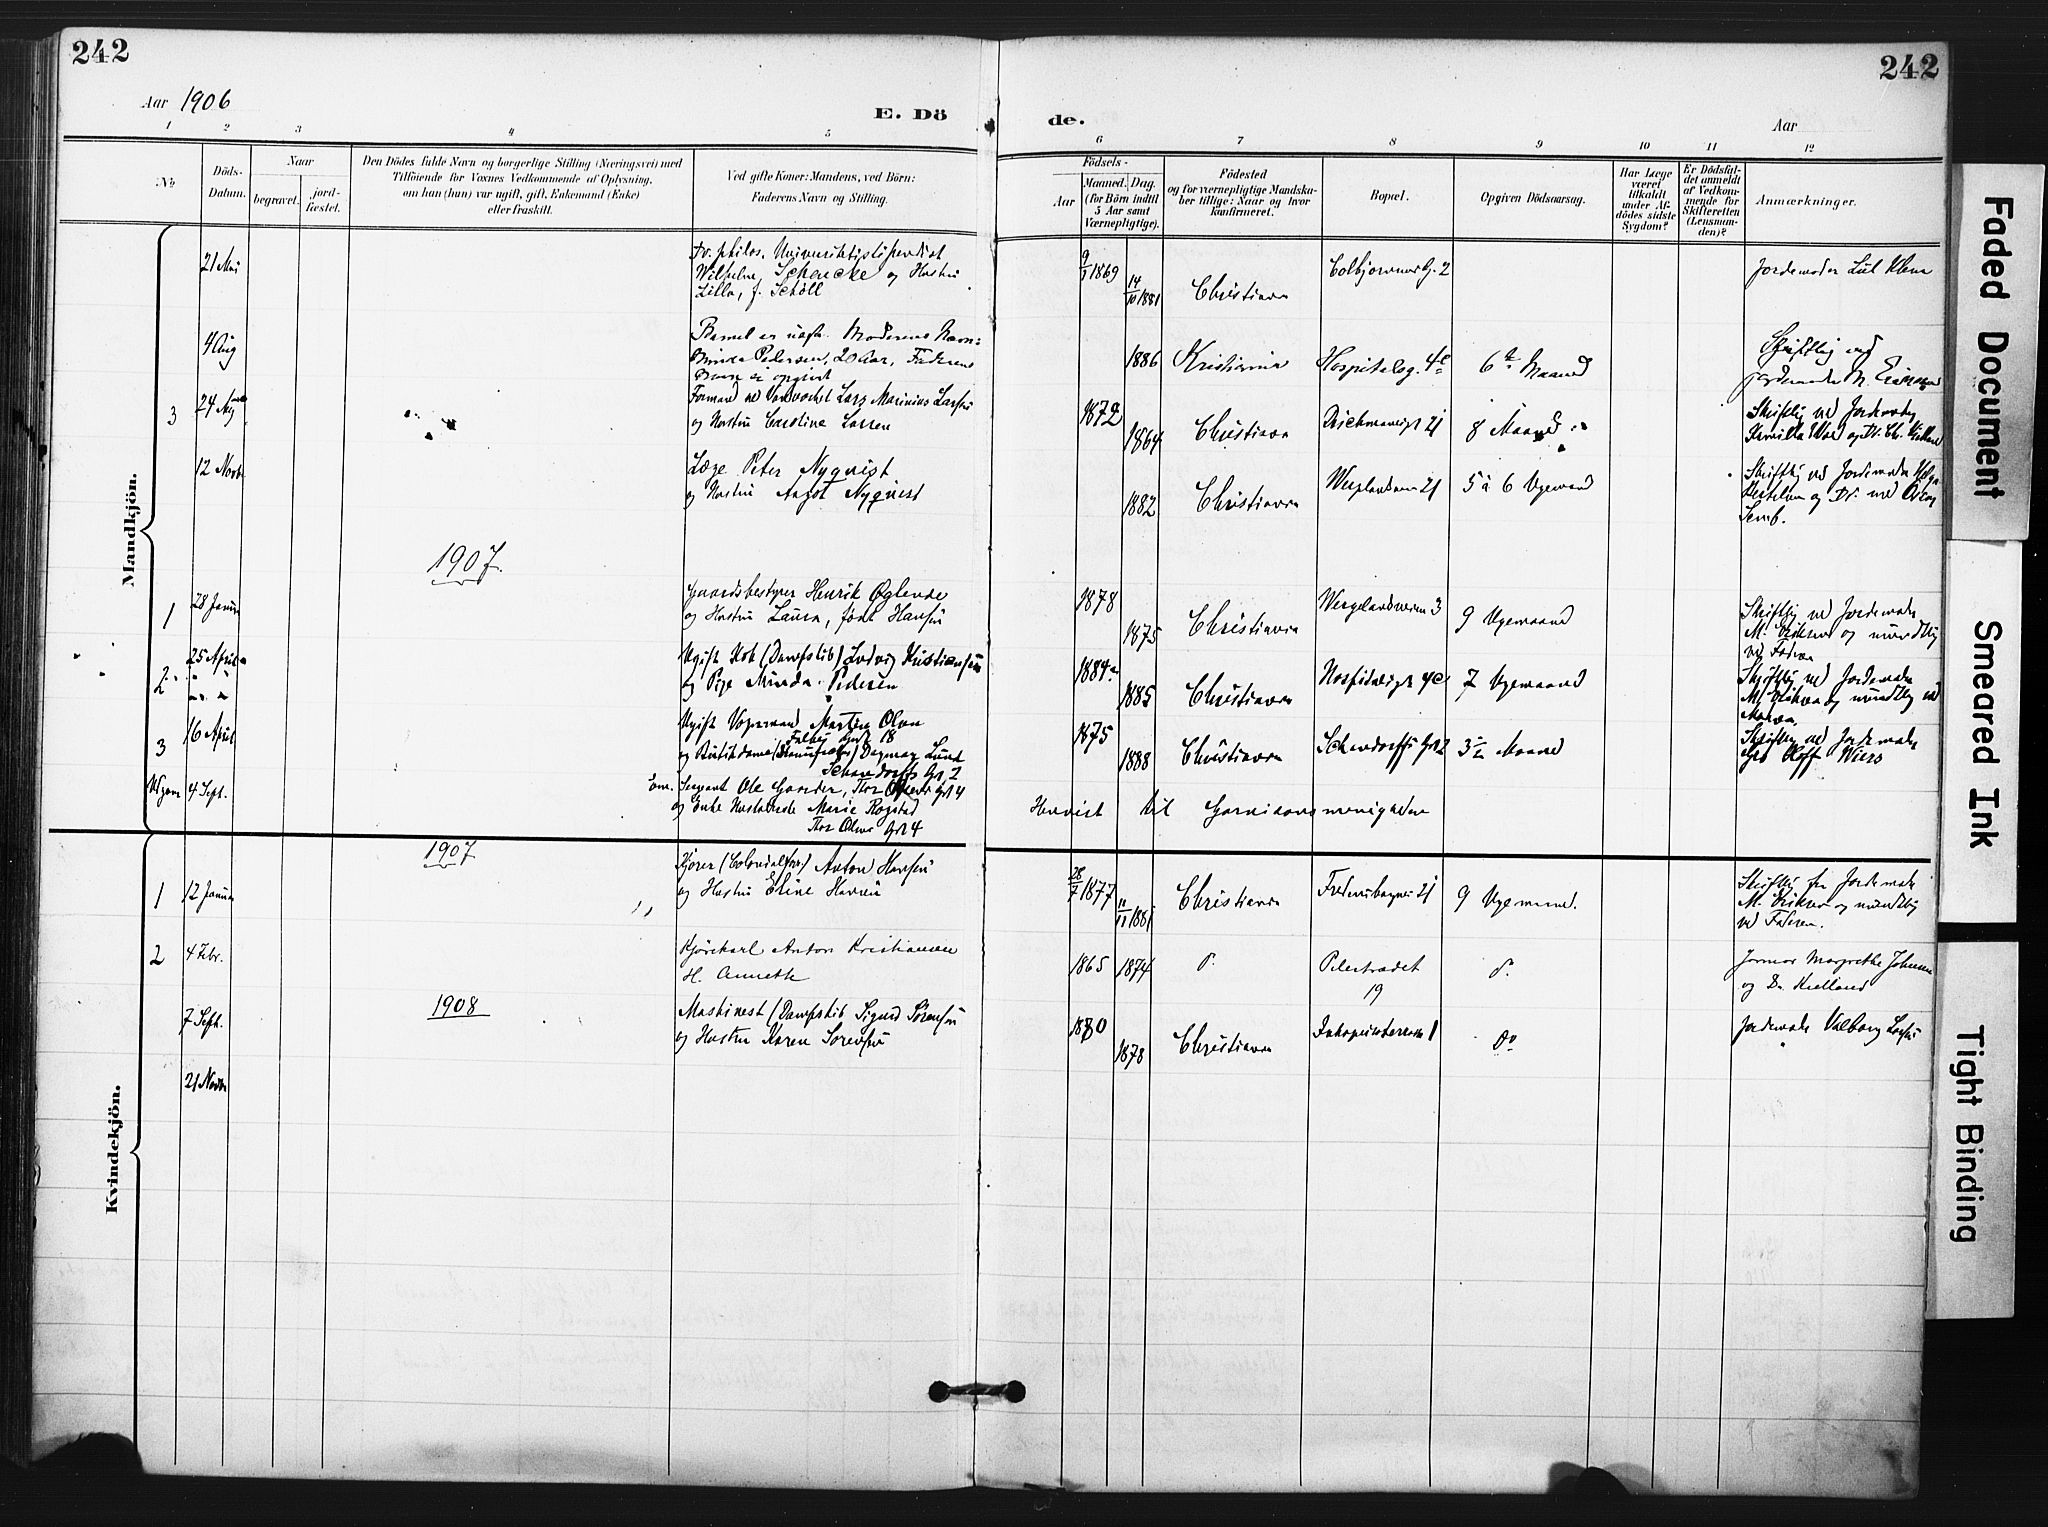 242
242
Aar 1906
E. Dö
de.
Aar
1 2 3 4 5 6 7 8 9 10 11 12
No.
Döds-
Datum.
Naar
begravet.
jord-
fæstet.
Den Dödes fulde Navn og borgerlige Stilling (Næringsvei) med
Tilföiende for Voxnes Vedkommende af Oplysning,
om han (hun) var ugift, gift, Enkemand (Enke)
eller fraskilt.
Ved gifte Koner: Mandens, ved Börn:
Faderens Navn og Stilling.
Födsels-
Aar
Maaned. Dag.
(for Börn indtil
5 Aar samt
Værnepligtige).
Födested
og for værnepligtige Mandska-
ber tillige: Naar og hvor
konfirmeret.
Bopæl.
Opgiven Dödsaarsag.
Har Læge
været
tilkaldt
under Af-
dödes sidste
Sygdom?
Er Dödsfal-
det anmeldt
af Vedkom-
mende for
Skifteretten
(Lensman-
den)?
Anmærkninger.
Mandkjön.
21 Mai
Dr. philos. Universitetsstipendiat
Wilhelm Schencke og Hustru
Zilla, f. Schöll
9/1 1869
14/10 1881
Christiania
Colbjørnsens G. 2
Jordemoder
4 Aug
Barnet er uægte. Moderens Navn:
Minda Pedersen, 20 Aar, Faderens
Navn ei opgivet
1886
Kristiania
Hospitalsg. 4c
6te Maaned
Skriftlig ved
jordemoder M. Eriksen
3
24 Aug
Formand ved Lars Marinius Larsen
og Hustru Caroline Larsen
1872
1864
Christiania
21
8 Maaned
Skriftlig ved Jordemoder
Kamilla og Dr. Chr. Kielland
12 Novbr
Læge Peter Nyquist
og Hustru Nyquist
1882
Christiania
21
5 à 6 Ugemaaned
Skriftlig ved Jordemoder Helga
og Dr. med Oscar
Semb.
1907.
1
28 Januar
Gaardsbestyrer Henrik Øglende
og Hustru Laura, født Hansen
1878
1875
Christiania
Wergelandsveien 3
9 Ugemaaned
Skriftlig ved Jordemoder
M. Eriksen og mundtlig
ved Faderen
2
25 April
Ugift Kok (Dampskib) Ludvig Kristiansen
og Pige Minda Pedersen
1884
1885
Christiania
Hospitalsgt 4c
7 Ugemaaned
Skriftlig ved Jordemoder
M. Eriksen og mundtlig ved
Moren
3
16 April
Ugift Vognmand Martin Olsen
Gade 18
og Butikdame Dagmar Lund
Schandorffs Gd. 2
1875
1888
Christiania
Schandorffs Gd 2
3½ Maaned
Skriftlig ved Jordemoder
4 Sept.
Sergeant Ole Gander, Thor Olsens Gd 4
og Enke Marie Rogstad
Thor Olsens Gd 4
Henvist til Garnisonsmenigheden
Kvindekjön.
1907
1
12 Januar
Kjører (Colonial) Anton Hansen
og Hustru Eline Hansen
28/7 1877
11/11 1881
Christiania
21
9 Ugemaaned.
Skriftlig fra Jordemoder
M. Eriksen og mundtlig
ved Faderen.
2
4 Febr.
Kjørekarl Anton Kristiansen
H. Annette
1865
1874
do.
Pilestrædet
19
do.
Jormor Margrethe Johnsen
og Dr. Kielland
1908
7 Sept.
Maskinist (Dampskib) Sigurd Sørensen
og Hustru Karen Sørensen
1880
1878
Christiania
Inkognitoterrasse 1
do
Jordemoder Valborg Larsen
21 Novbr
Faded Document
Smeared Ink
Tight Binding